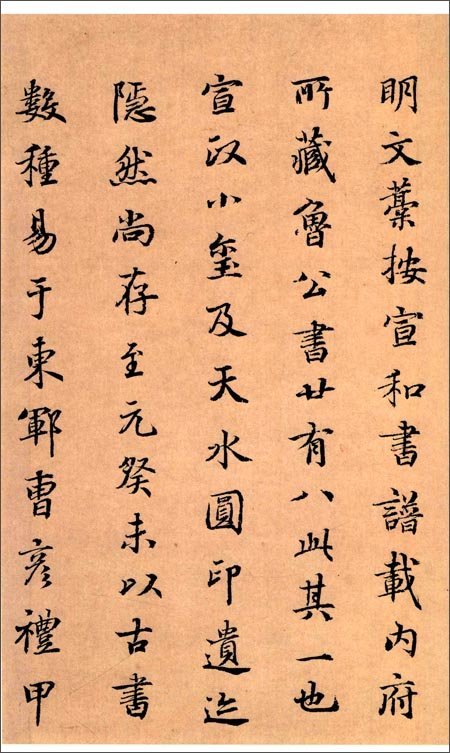 明文藁按宣和書譜載内府
所藏魯公書廿有八此其一也
宣政小璽及天水圓印遺迹
隱然尚存至元癸未以古書
數種易于東鄆曹彦禮甲